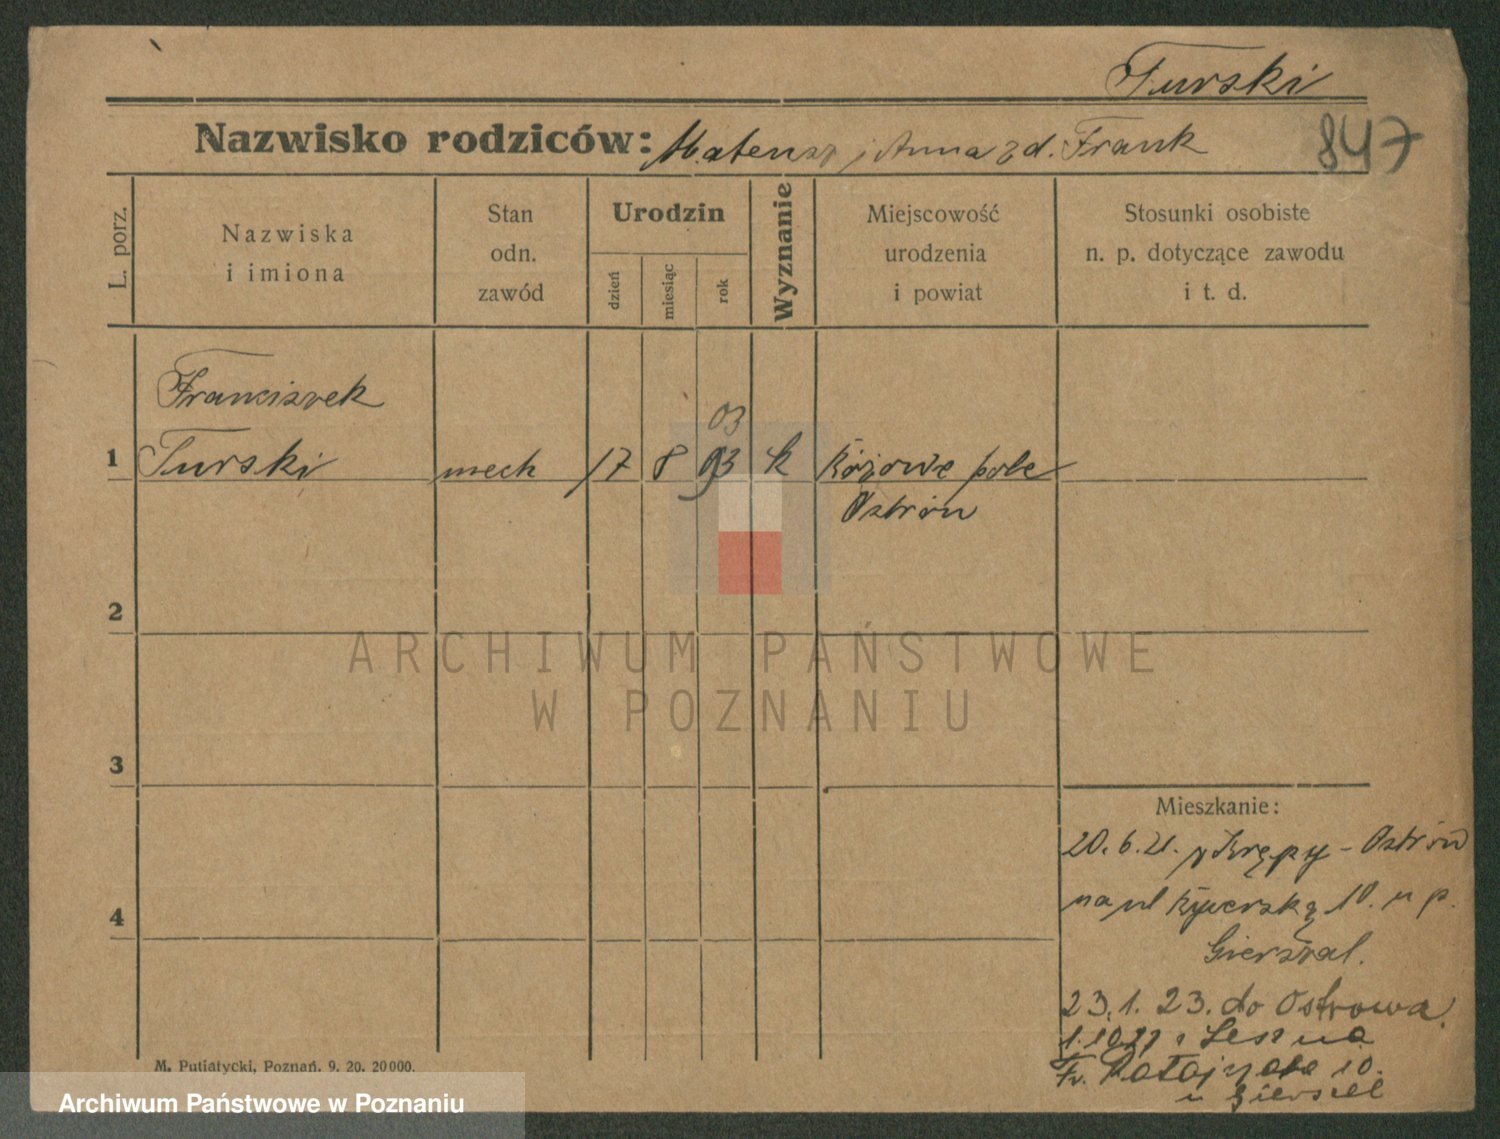 Turski
Nazwisko rodziców: Mateusz i Anna z d. Frank
847
L. porz.
Nazwiska
i imiona
Stan
odn.
zawód
Urodzin
dzień
miesiąc
rok
Wyznanie
Miejscowość
urodzenia
i powiat
Stosunki osobiste
n. p. dotyczące zawodu
i t. d.
Franciszek
03
1 Turski mech 17 8 93 k Różowe pole
Ostrów
2
ARCHIWUM PAŃSTWOWE
W POZNANIU
3
Mieszkanie:
20.6.21. z Krępy - Ostrów
na ul 10. u p.
4
Gierszal.
23.1.23. do Ostrowa.
z Leszna
Fr. Ratajczaka 10.
u Gierszel
M. Putiatycki, Poznań. 9. 20. 20000.
Archiwum Państwowe w Poznaniu